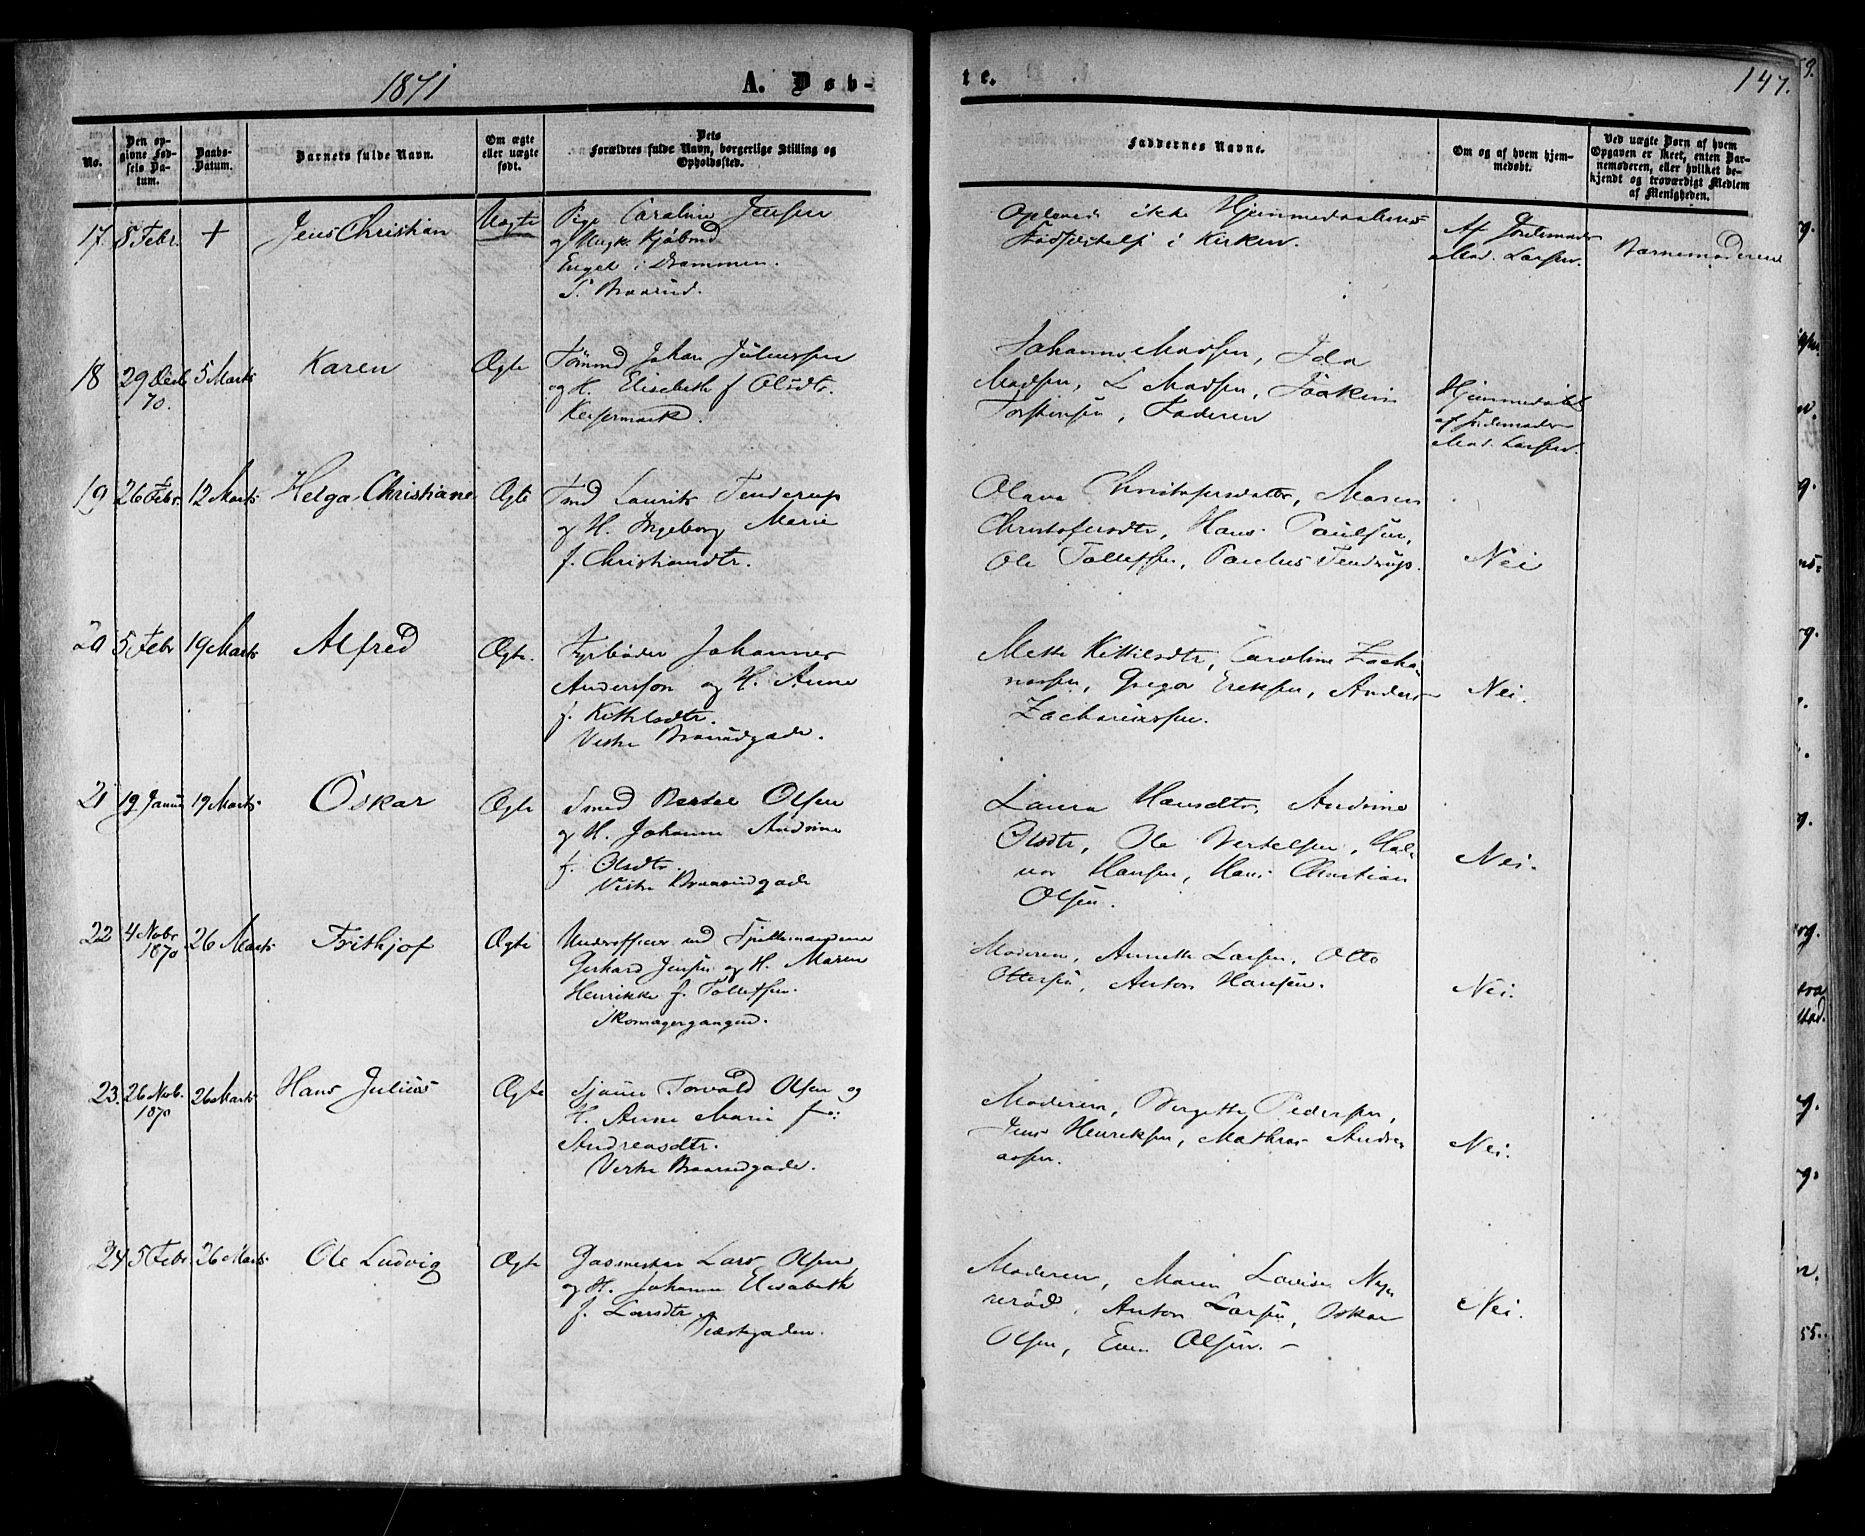 1871
A. Døb-
te.
147.
No.
Den op-
givne Fød-
sels Da-
tum.
Daabs-
Datum.
Barnets fulde Navn.
Om ægte
eller uægte
født.
Dets
Forældres fulde Navn, borgerlige Stilling og
Opholdssted.
Faddernes Navne.
Om og af hvem hjem-
medøbt.
Ved uægte Børn af hvem
Opgaven er skeet, enten Bar-
nemoderen, eller hvilket be-
kjendt og troværdigt Medlem
af Menigheden.
17
8 Febr.
+
Jens Christian
Uægte
Pige Caroline Jensen
og Ungk. Kjøbmd
Engel i Drammen.
S. Braarud.
Oplevede ikke Hjemmedaabens
Stadfæstelse i Kirken.
Af Jordemoder
Mad. Larsen.
Barnemoderen
18
29 Decb
70.
5 Marts
Karen
Ægte
Tømmd Johan Juliussen
og H. Elisabeth f Olsdtr.
Keisermark.
Johanne Madsen, Ida
Madsen, L Madsen, Joakim
Torstensen, Faderen
Hjemmedøbt
af Jordemoder
Mad. Larsen.
19
26 Febr.
12 Marts
Helga Christiane
Ægte
Tmd Laurits Tenderup
og H. Ingeborg Marie
f. Christiansdtr.
Olava Christofersdatter, Maren
Christofersdtr, Hans Paulsen,
Ole Tollefsen, Paulus Tendrup.
Nei
20
5 Febr
19 Marts
Alfred
Ægte.
Fyrbøder Johannes
Anderssøn og H. Anne
f. Kittilsdtr.
Vestre Braarudgade.
Mette Kittilsdtr, Caroline Zacha-
riassen, Gregor Eriksen, Anders
Zachariassen.
Nei.
21
19 Januar
19 Marts
Oskar
Ægte
Smed Bertel Olsen
og H. Johanne Andrine
f. Olsdtr,
Vestre Braarudgade
Laura Hansdtr, Andrine
Olsdtr, Ole Bertelsen, Hal-
vor Hansen, Hans Christian
Olsen.
Nei.
22
4 Nobr
1870
26 Marts
Frithjof
Ægte
Underofficer ved Spillemændene
Gerhard Jensen og H. Maren
Henrikke f. Tollefsen.
Skomagergangen.
Moderen, Annette Larsen, Otto
Ottersen, Anton Hansen.
Nei.
23.
26 Nob.
1870
26 Marts
Hans Julius
Ægte
Sjømd Torvald Olsen og
H. Anne Marie f:
Andreasdtr.
Vestre Braarudgade.
Moderen, Bergitte Pedersen,
Jens Henriksen, Mathias Andre-
assen.
Nei.
24
5 Febr.
26 Marts
Ole Ludvig
Ægte
Gasmester Lars Olsen
og H. Johanne Elisabeth
f. Larsdtr,
Præstegaden.
Moderen, Maren Lovise Ny-
rerød, Anton Larsen, Oskar
Olsen, Even Olsen. –
Nei.